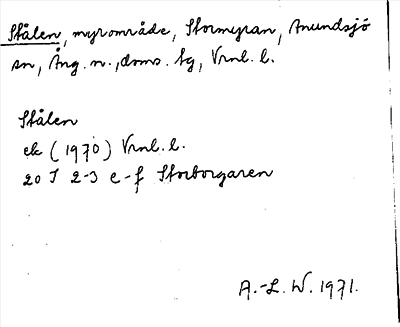 Stålen, myrområde, Stormyran, Anundsjö
sn, Ång. n., doms. tg, Vrnl. l.
Stålen
ek (1970) Vrnl. l.
20 I 2-3 e-f Storborgaren
A.-L. W. 1971.